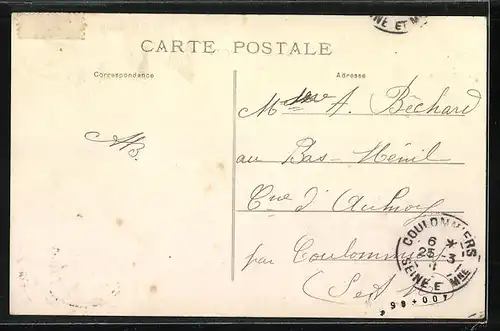 NE ET M
CARTE POSTALE
Correspondance
Adresse
AB.
A. Béchard
au Bas-Ménil
Cne d'Aulnoy
par Coulommiers
COULOMMIERS
6 *
25 3
SEINE ET MNE